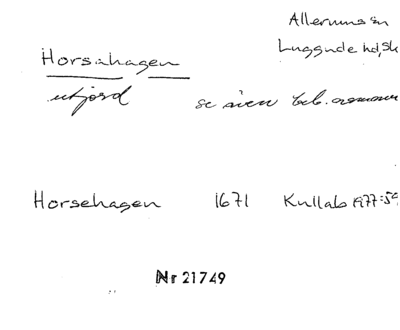 Allerums sn
Luggude hd, Sk
Horsahagen
utjord se även beb.namnen
Horsehagen 1671 Kullab 1977:59
Nr 21749